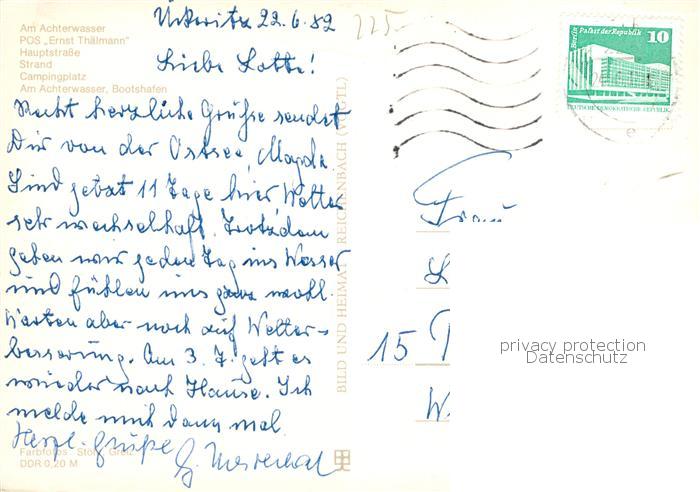 Ückeritz 22.6.82
225
Am Achterwasser
POS „Ernst Thälmann"
Hauptstraße
Strand
Campingplatz
Am Achterwasser, Bootshafen
Liebe Lotte!
Recht herzliche Grüße sendet
Dir von der Ostsee, Magda.
Sind jetzt 11 Tage hier Wetter
sehr wechselhaft. Trotzdem
gehen wir jeden Tag ins Wasser
und fühlen uns ganz wohl.
Warten aber noch auf Wetter-
besserung. Am 3.7. geht es
wieder nach Hause. Ich
melde mich dann mal
Herzl. Grüße
Farbfotos:
DDR 0,20 M
BILD UND HEIMAT REICHENBACH (VOGTL)
Berlin Palast der Republik 10
DEUTSCHE DEMOKRATISCHE REPUBLIK
Frau
L
15
W
privacy protection
Datenschutz